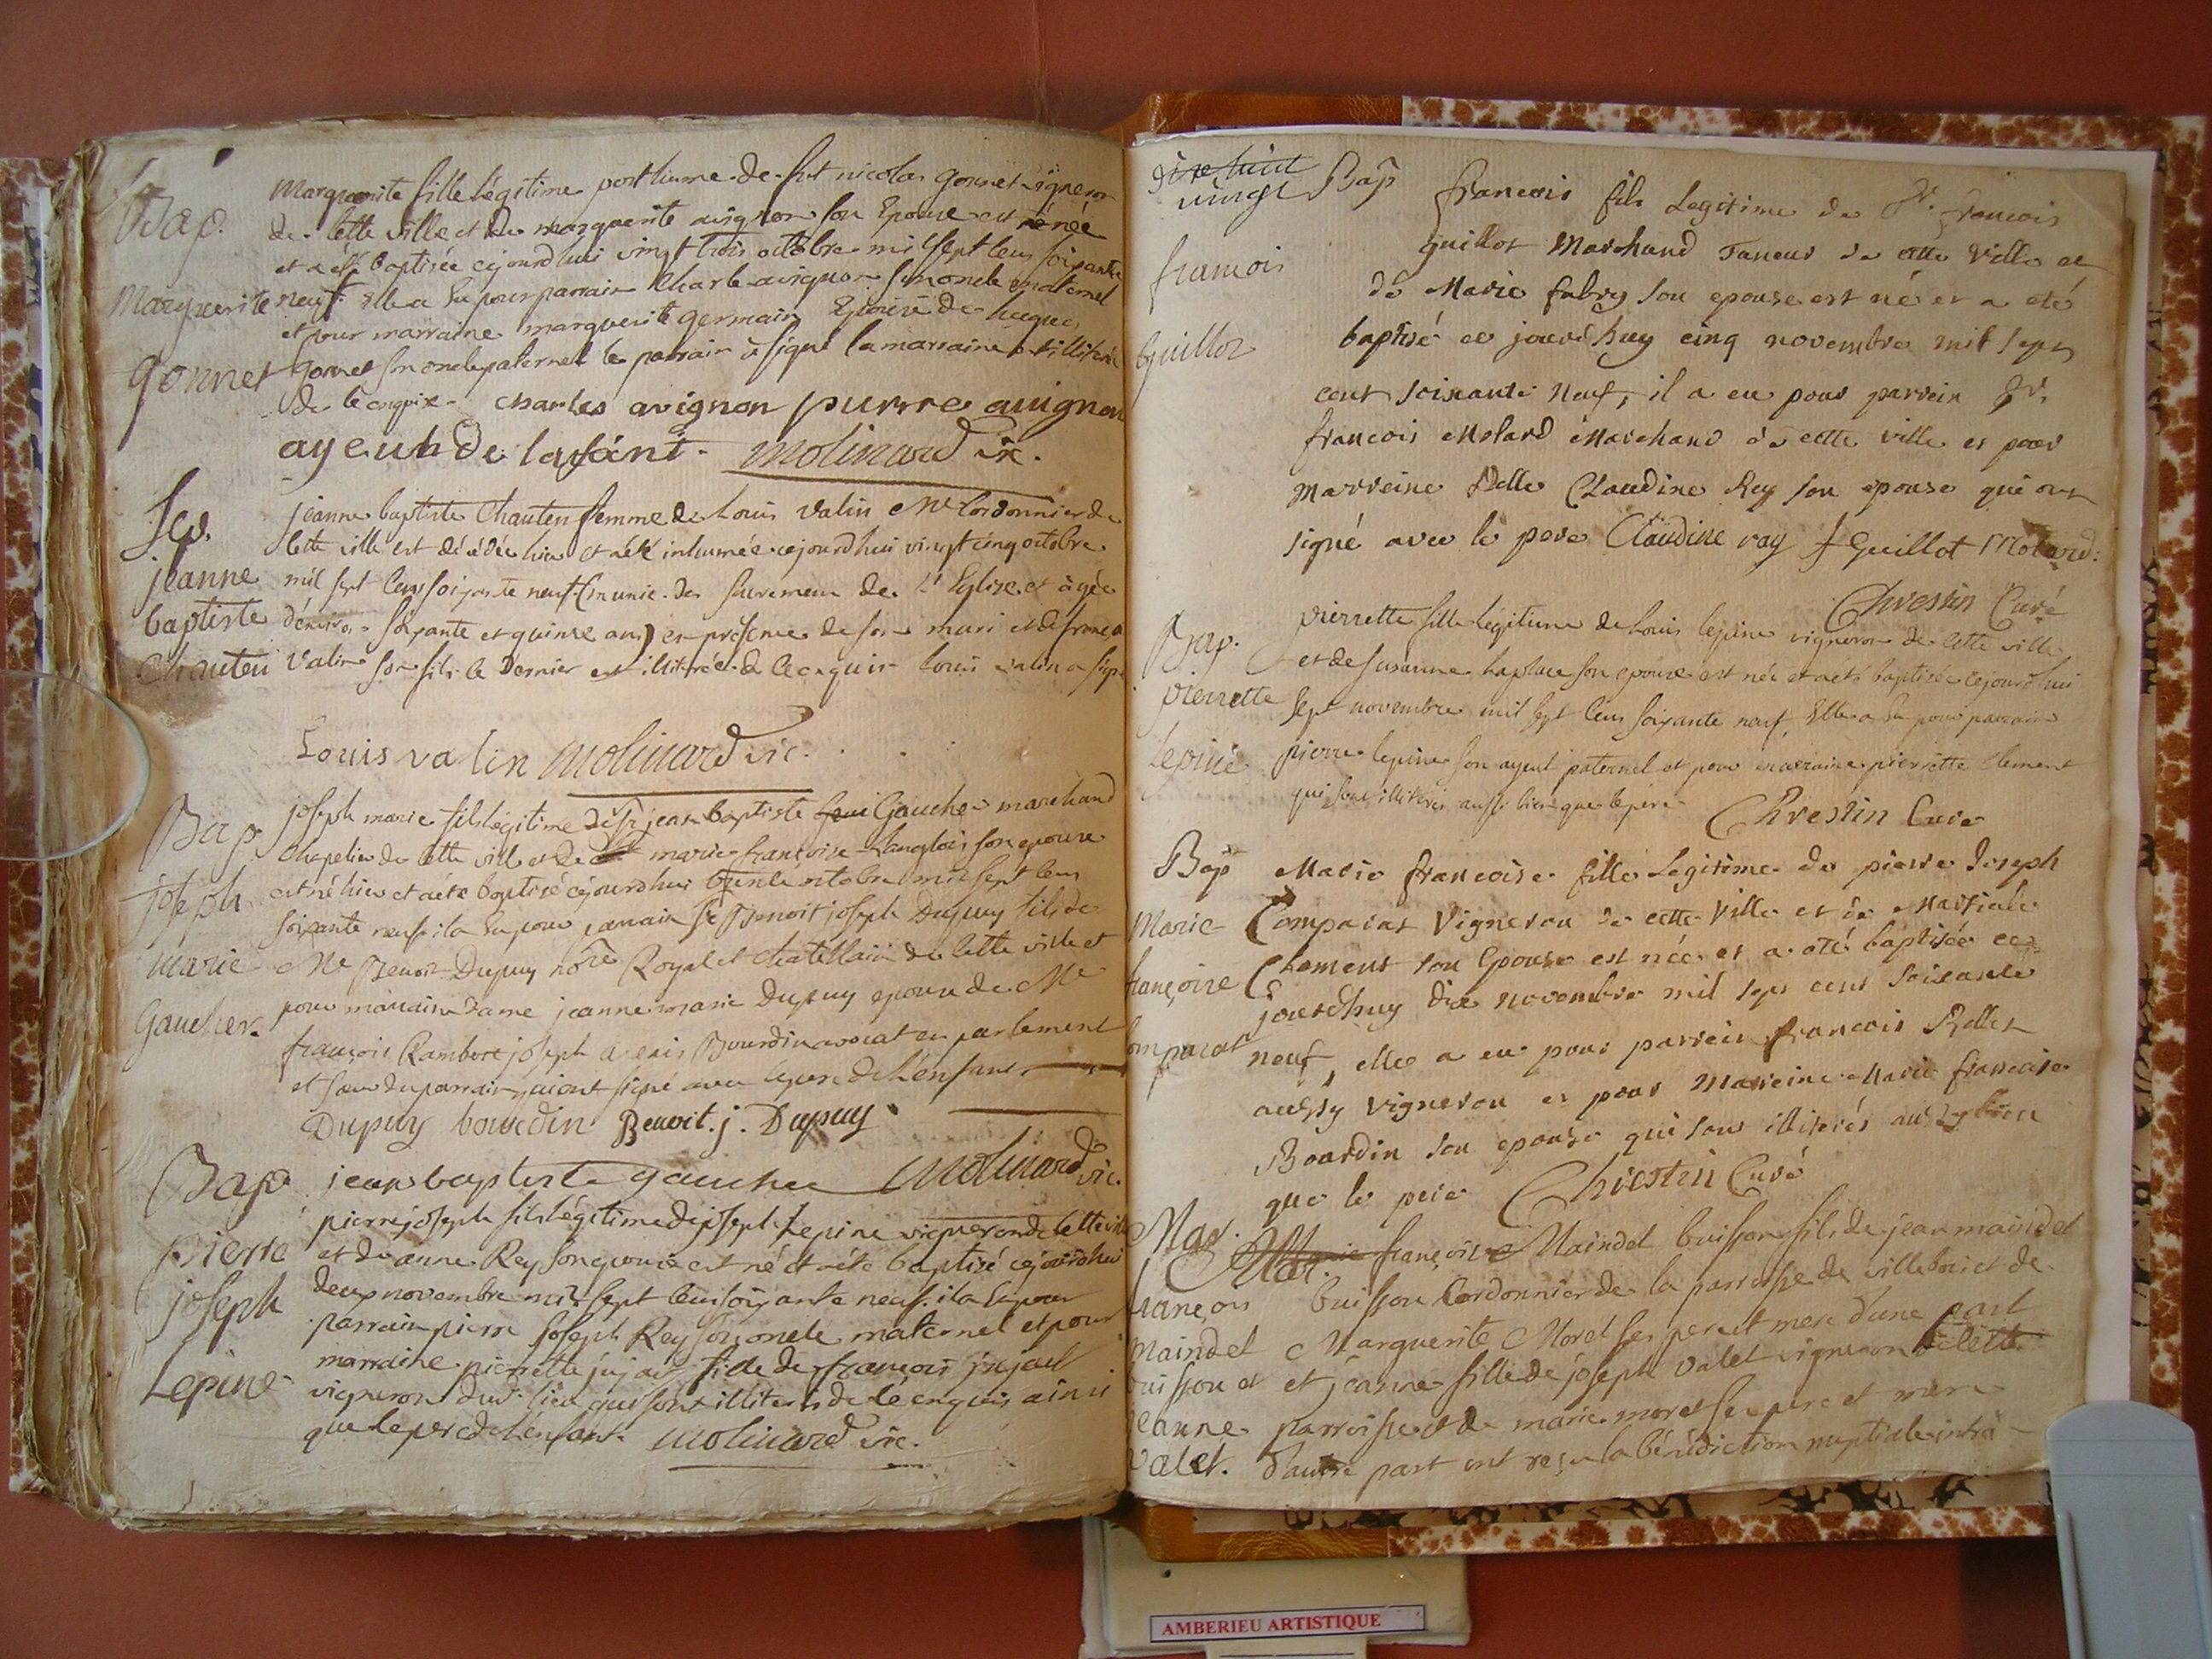 Bap.
Marguerite
gonnet
Marguerite fille légitime posthume de fut nicolas gonnet vigneron
de cette ville et de marguerite avignon son Epouse est née
et a eté baptisée cejourdhui vingt trois octobre mil sept cens soixante
neuf. elle a eu pour parrain Charle avignon son oncle maternel
et pour marraine marguerite germain Epouse de hugues
gonnet son oncle paternel le parrain a signé la marraine est illiterée
de ce enquise. charles avignon pierre avignon
ayeul de lanfant. Molinard vic.
Sep.
jeanne
baptiste
Chauten
jeanne baptiste Chauten femme de Louis Valin Me Cordonnier de
cette ville est décédée hier et a été inhumée cejourdhui vingt cinq octobre
mil sept cens soixante neuf munie des sacremens de l'Eglise et agée
d'environ soixante et quinze ans en présence de son mari et de françois
Valin son fils le dernier est illitéré de ce enquis louis valin a signé
Louis valin Molinard vic.
Bap
joseph
marie
Gaucher.
joseph marie fils légitime de Sr jean baptiste Gaucher marchand
Chapelier de cette ville et de marie françoise Langlois son epouse
est né hier et a été baptisé cejourdhui trente octobre mil sept cens
soixante neuf. il a eu pour parrain Sr Benoit joseph Dupuy fils de
Me Benoit Dupuy nore Royal et chatellain de cette ville et
pour marraine Dame jeanne marie Dupuy epouse de Me
françois Rambert joseph alexis Bourdin avocat en parlement
et soeur du parrain qui ont signé avec le pere de l'enfant
Dupuy bourdin Benoit. j. Dupuy
jean baptiste gaucher Molinard vic.
Bap
pierre
joseph
Lepine
pierre joseph fils légitime de joseph Lepine vigneron de cette ville
et de anne Rey son epouse est né et a été baptisé cejourdhui
deux novembre mil sept cens soixante neuf. il a eu pour
parrain pierre joseph Rey son oncle maternel et pour
marraine pierrette jujat fille de françois jujat
vigneron dudt lieu qui sont illiterés de ce enquis ainsi
que le pere de l'enfant. Molinard vic.
dixe huit
vingt
Bap
francois
guillot
francois fils Legitime de Sr. francois
guillot Marchand Taneur de cette Ville et
de Marie fabry son epouse est né et a eté
baptisé ce jourdhuy cinq novembre mil sept
cent soixante neuf, il a eu pour parrein Sr.
francois Molard Marchand de cette ville et pour
Marreine Delle Claudine Rey son epouse qui ont
signé avec le pere Claudine ray f Guillot Molard.
Chrestin Curé
Bap.
pierrette
Lepine
pierrette fille légitime de Louis lepine vigneron de cette ville
et de susanne Laplace son epouse est née et a eté baptisée cejourdhui
sept novembre mil sept cens soixante neuf, Elle a eu pour parrain
pierre lepine son ayeul paternel et pour marraine pierrette Clement
qui sont illiterés aussi bien que le pere
Chrestin Curé
Bap
Marie
françoise
Comparat
Marie francoise fille Legitime de pierre Joseph
Comparat Vigneron de cette Ville et de Martiale
Chement son Epouse est née et a oté baptisée ce
jourdhuy dix novembre mil sept cent soixante
neuf, elle a eu pour parrein francois Rellet
aussy vigneron et pour Marreine Marie francoise
Bourdin son epouse qui sont illiterés aussy bien
que le pere Chrestin Curé
Mar.
françois
Maindel
buisson et
jeanne
Valet.
françois Maindel buisson fils de jean maindel
buisson Cordonnier de la parroisse de villebois et de
Marguerite Morel ses pere et mere d'une part
et jeanne fille de joseph Valet vigneron de cette
parroisse et de marie morel ses pere et mere
d'autre part ont reçu la bénédiction nuptiale intrà
AMBERIEU ARTISTIQUE